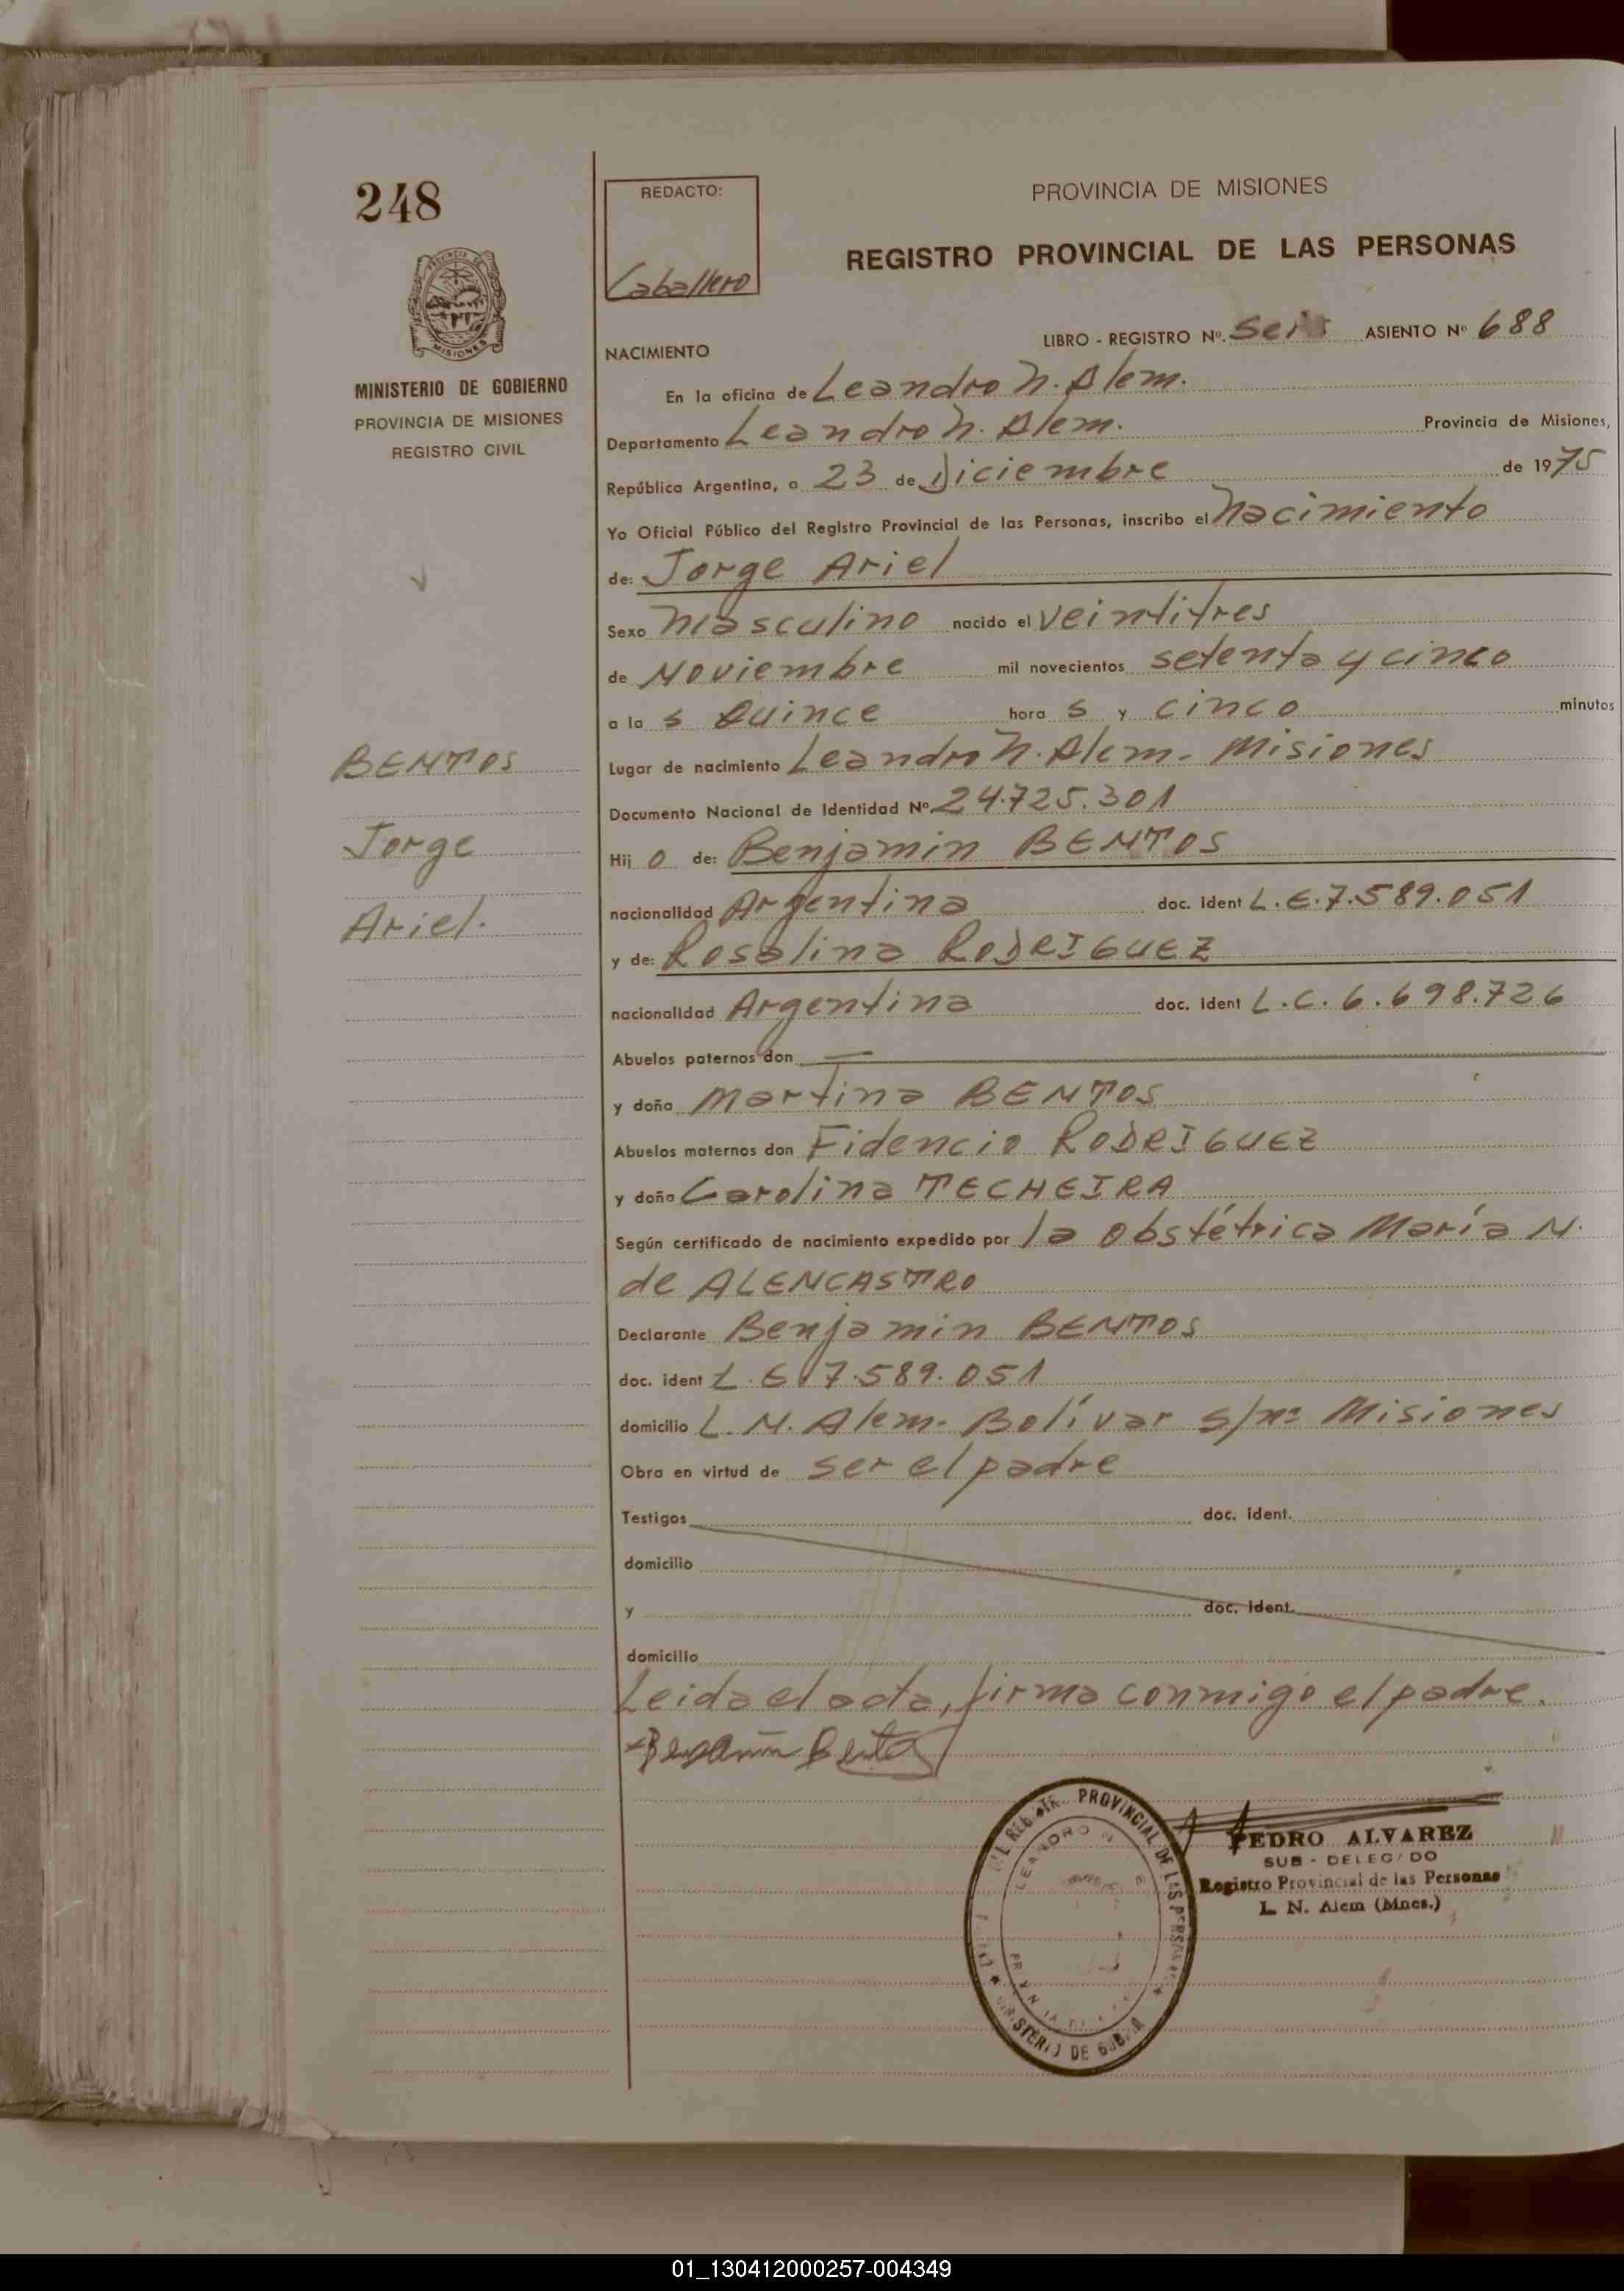 248
PROVINCIA DE
MISIONES
MINISTERIO DE GOBIERNO
PROVINCIA DE MISIONES
REGISTRO CIVIL
BENTOS
Jorge
Ariel.
REDACTO:
Caballero
PROVINCIA DE MISIONES
REGISTRO PROVINCIAL DE LAS PERSONAS
LIBRO - REGISTRO Nº. Seis ASIENTO Nº 688
NACIMIENTO
En la oficina de Leandro N. Alem.
Departamento Leandro N. Alem. Provincia de Misiones,
República Argentina, a 23 de Diciembre de 1975
Yo Oficial Público del Registro Provincial de las Personas, inscribo el Nacimiento
de: Jorge Ariel
Sexo Masculino nacido el veintitres
de Noviembre mil novecientos setenta y cinco
a la s Quince hora s y cinco minutos
Lugar de nacimiento Leandro N. Alem - Misiones
Documento Nacional de Identidad Nº 24.725.301
Hij o de: Benjamin BENTOS
nacionalidad Argentina doc. ident L.E. 7.589.051
y de: Rosalina RODRIGUEZ
nacionalidad Argentina doc. ident L.C. 6.698.726
Abuelos paternos don —
y doña Martina BENTOS
Abuelos maternos don Fidencio RODRIGUEZ
y doña Carolina TECHEIRA
Según certificado de nacimiento expedido por la Obstétrica María N.
de ALENCASTRO
Declarante Benjamin BENTOS
doc. ident L.E. 7.589.051
domicilio L.N. Alem - Bolívar s/nº Misiones
Obra en virtud de ser el padre
Testigos doc. ident.
domicilio
y doc. ident.
domicilio
Leida el acta, firma conmigo el padre.
PROVINCIAL DE LAS PERSONAS
LEANDRO N
MINISTERIO DE GOB
PEDRO ALVAREZ
SUB - DELEGADO
Registro Provincial de las Personas
L. N. Alem (Mnes.)
01_130412000257-004349